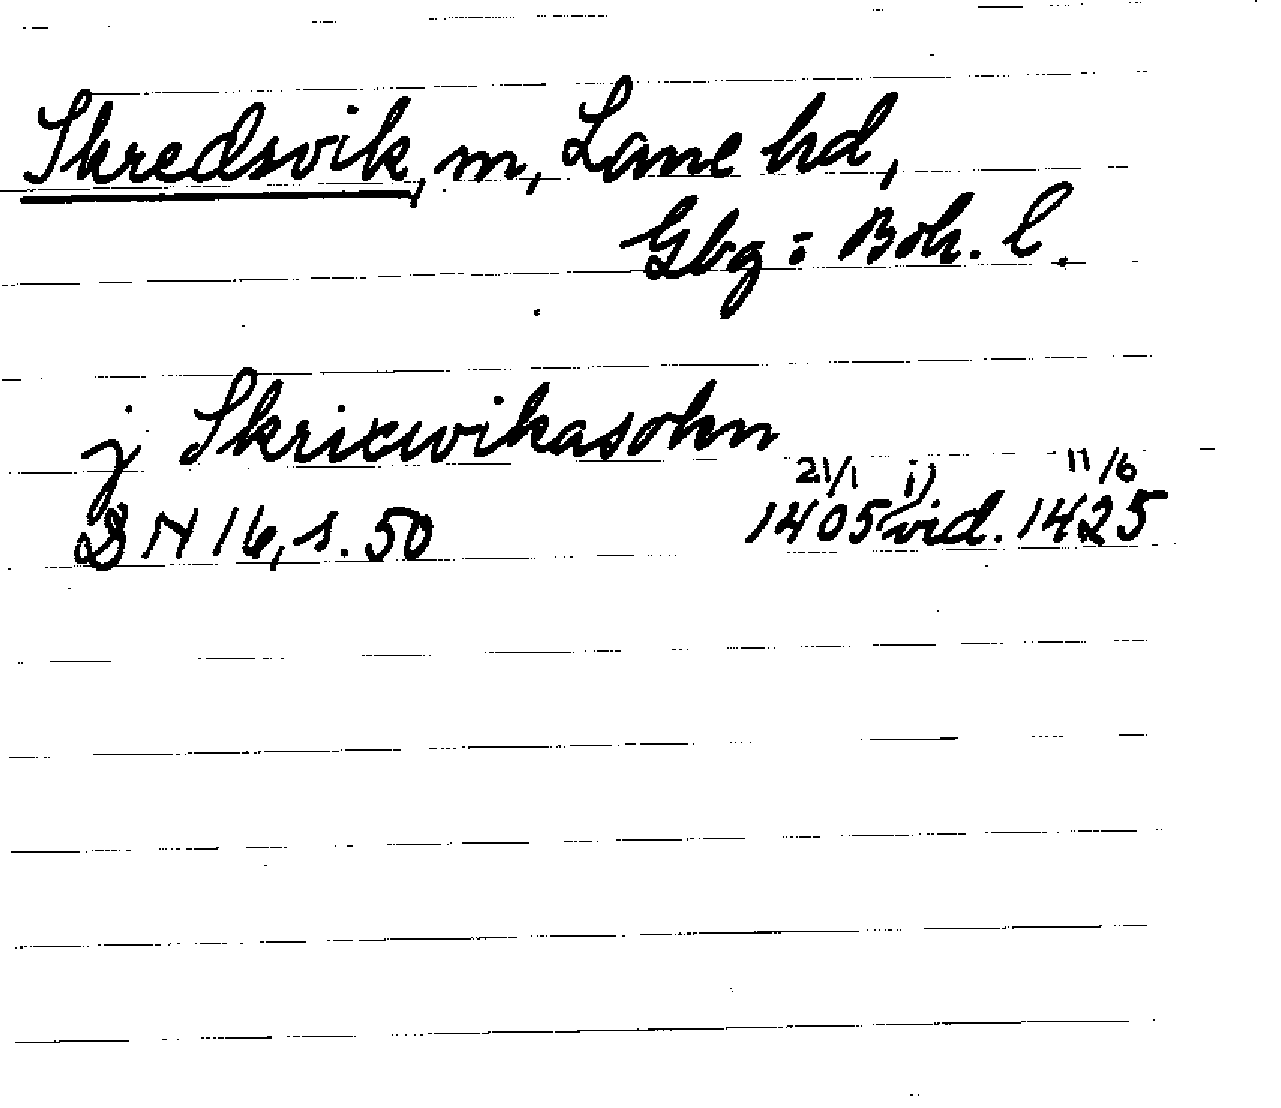 Skredsvik, m, Lane hd,
Gbg : Boh. l.
j Skrixwikasokn
21/1 i) 11/6
DN 16, s. 50 1405 vid. 1425